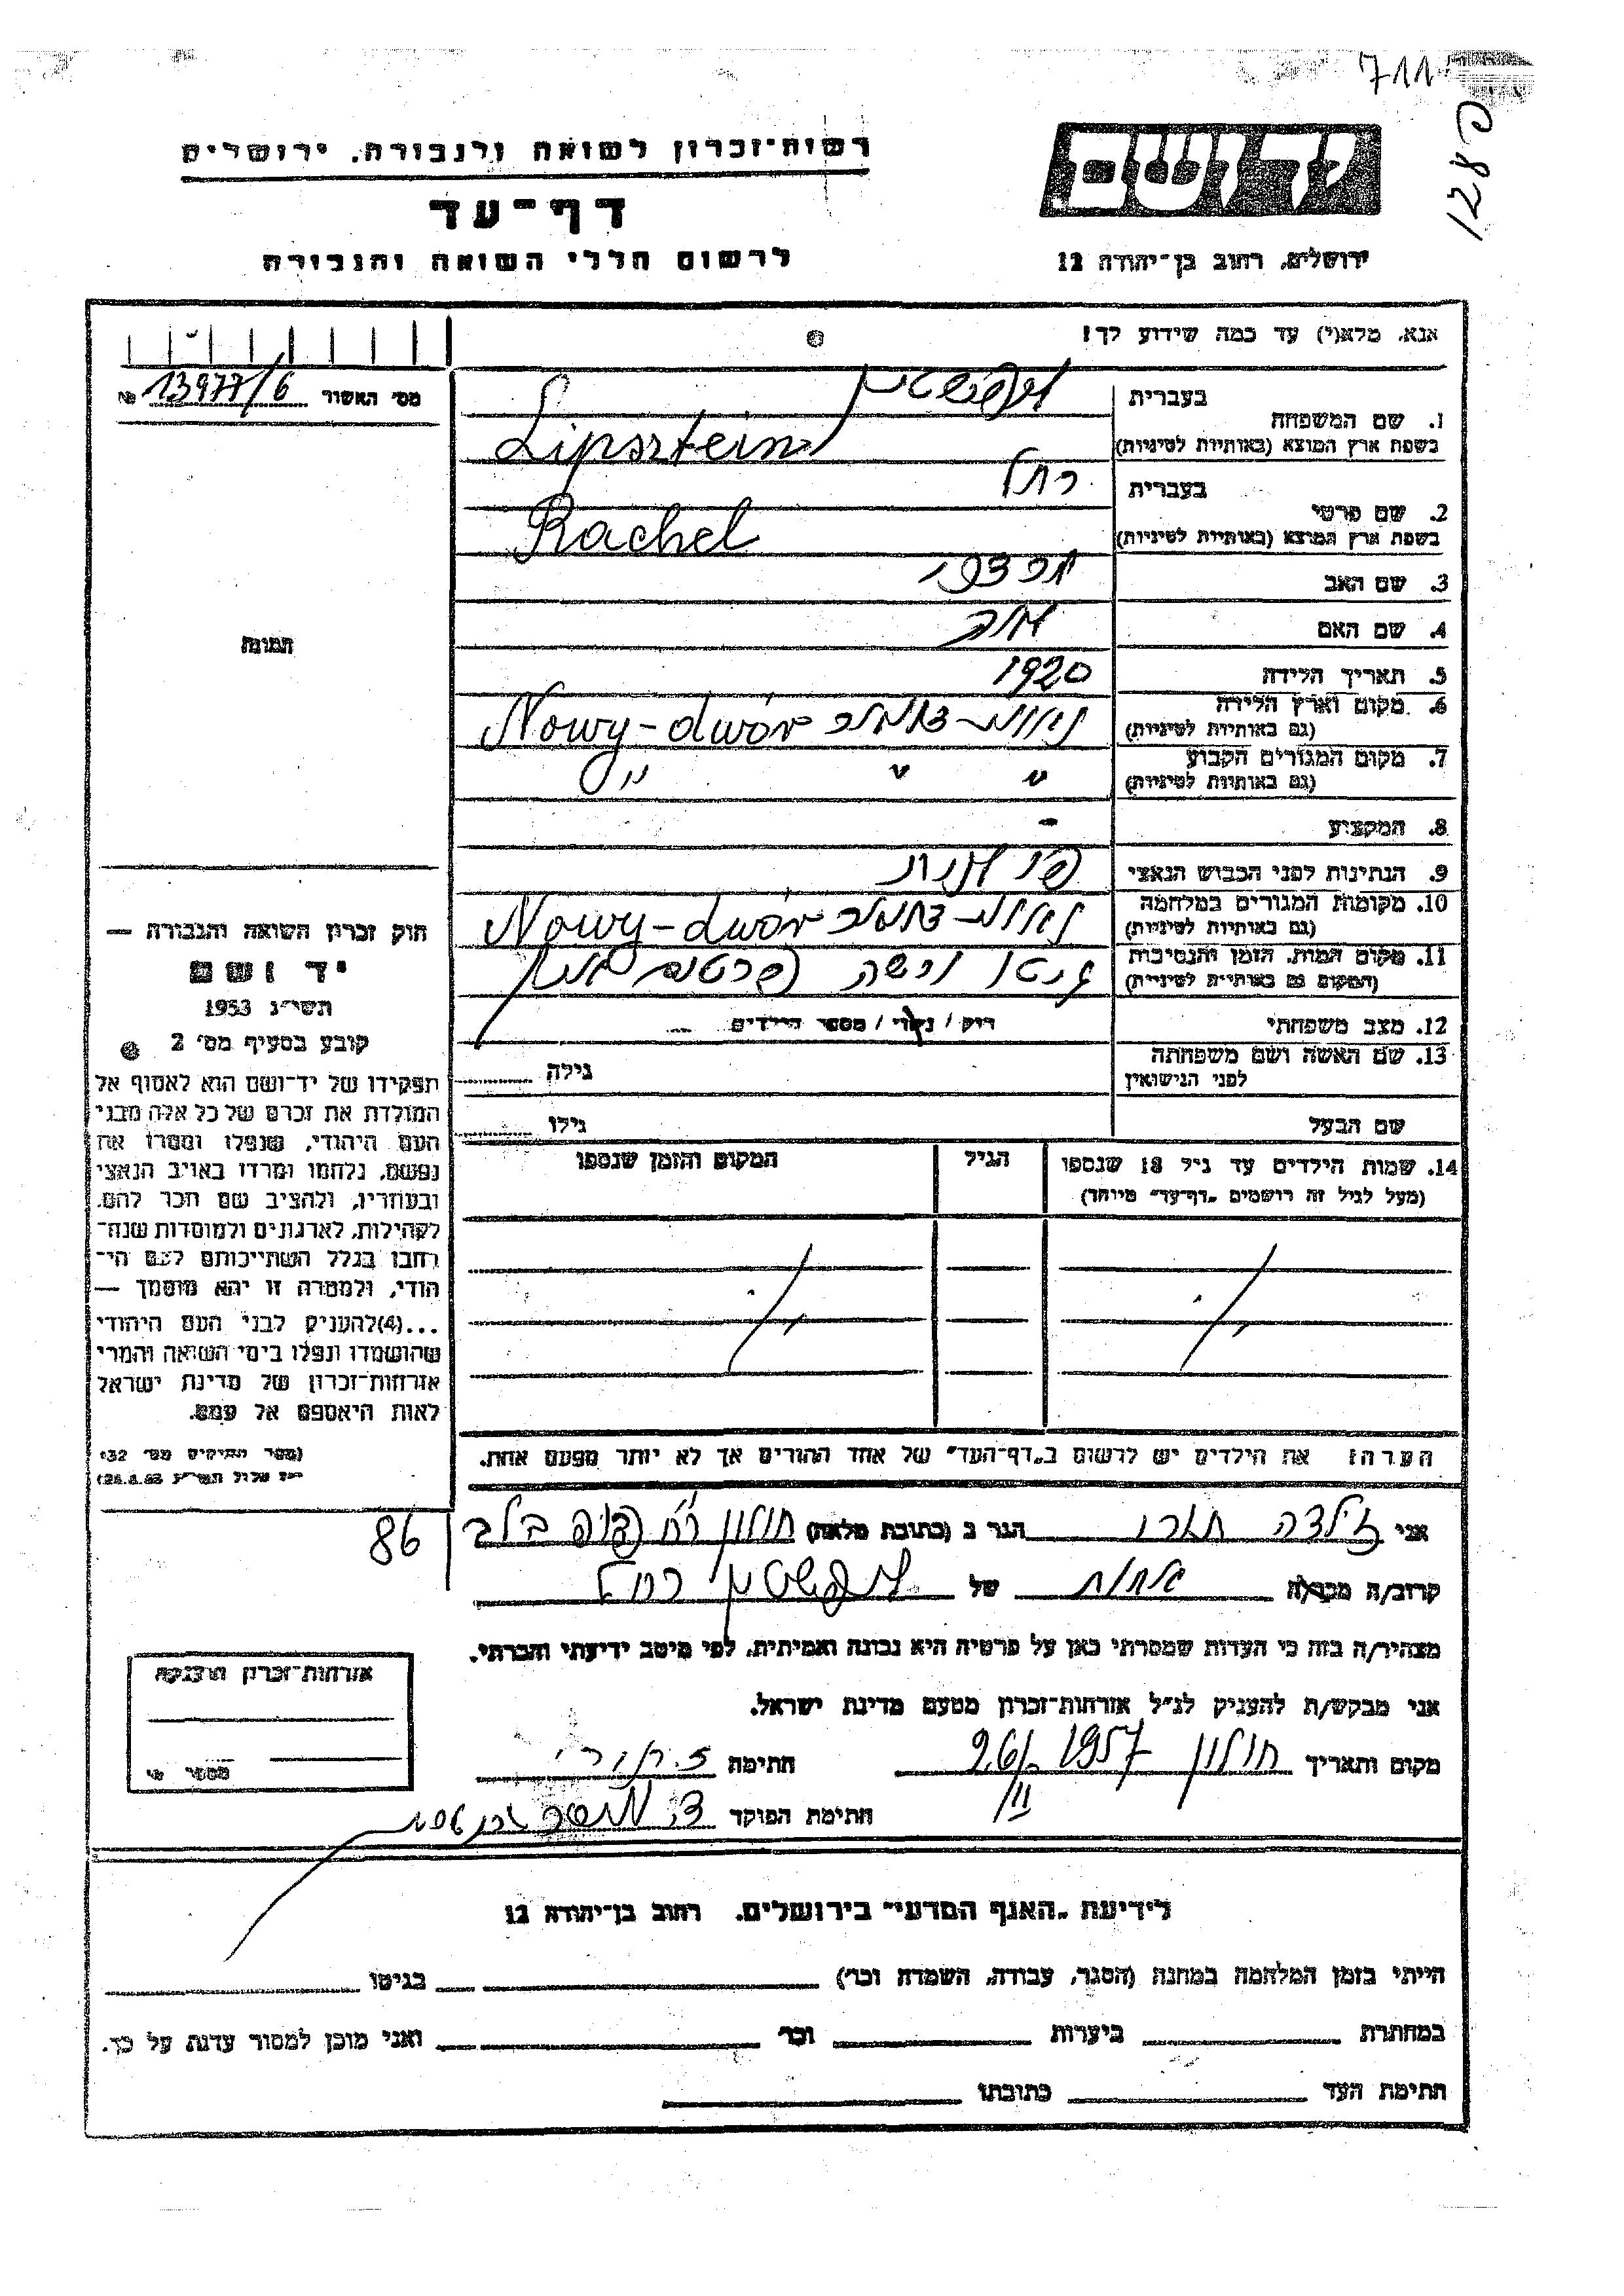 רשות-זכרון לשואה ולגבורה, ירושלים
דף-עד
לרשום חללי השואה והגבורה
יד ושם
ירושלים, רחוב בן-יהודה 12
אנא, מלא(י) עד כמה שידוע לך!
מס' האשור 13977/6 №
1. שם המשפחה בעברית ליפשטיין
בשפת ארץ המוצא (באותיות לטיניות) Lipsztein
2. שם פרטי בעברית רחל
בשפת ארץ המוצא (באותיות לטיניות) Rachel
3. שם האב
4. שם האם
5. תאריך הלידה 1920
6. מקום וארץ הלידה
(גם באותיות לטיניות) Nowy-dwór
7. מקום המגורים הקבוע " " "
(גם באותיות לטיניות)
8. המקצוע -
9. הנתינות לפני הכבוש הנאצי פולנית
10. מקומות המגורים במלחמה
(גם באותיות לטיניות) Nowy-dwór
11. מקום המות, הזמן והנסיבות
(המקום גם באותיות לטיניות)
12. מצב משפחתי רוק / נשוי / מספר הילדים
13. שם האשה ושם משפחתה גילה
לפני הנישואין
שם הבעל גילו
14. שמות הילדים עד גיל 18 שנספו הגיל המקום והזמן שנספו
(מעל לגיל זה רושמים "דף-עד" מיוחד)
הערה: את הילדים יש לרשום ב"דף-העד" של אחד ההורים אך לא יותר מפעם אחת.
התמונה
חוק זכרון השואה והגבורה —
יד ושם
תשי"ג 1953
קובע בסעיף מס' 2
תפקידו של יד-ושם הוא לאסוף אל
המולדת את זכרם של כל אלה מבני
העם היהודי, שנפלו ומסרו את
נפשם, נלחמו ומרדו באויב הנאצי
ובעוזריו, ולהציב שם וזכר להם,
לקהילות, לארגונים ולמוסדות שנח-
רבו בגלל השתייכותם לעם הי-
הודי, ולמטרה זו יהא מוסמך —
...(4)להעניק לבני העם היהודי
שהושמדו ונפלו בימי השואה והמרי
אזרחות-זכרון של מדינת ישראל
לאות היאספם אל עמם.
אני זלדה הגר ב (כתובת מלאה) חולון רח' 86
קרוב/ה מכר/ה אחות של ליפשטיין רחל
מצהיר/ה בזה כי העדות שמסרתי כאן על פרטיה היא נכונה ואמיתית, לפי מיטב ידיעתי והכרתי.
אני מבקש/ת להעניק לנ"ל אזרחות-זכרון מטעם מדינת ישראל.
מקום ותאריך חולון 1957 26/II חתימה
חתימת הפוקד
אזרחות-זכרון הוענקה
לידיעת "האגף המדעי" בירושלים, רחוב בן-יהודה 12
הייתי בזמן המלחמה במחנה (הסגר, עבודה, השמדה וכו') בגיטו
במחתרת ביערות וכו' ואני מוכן למסור עדות על כך.
חתימת העד כתובתו